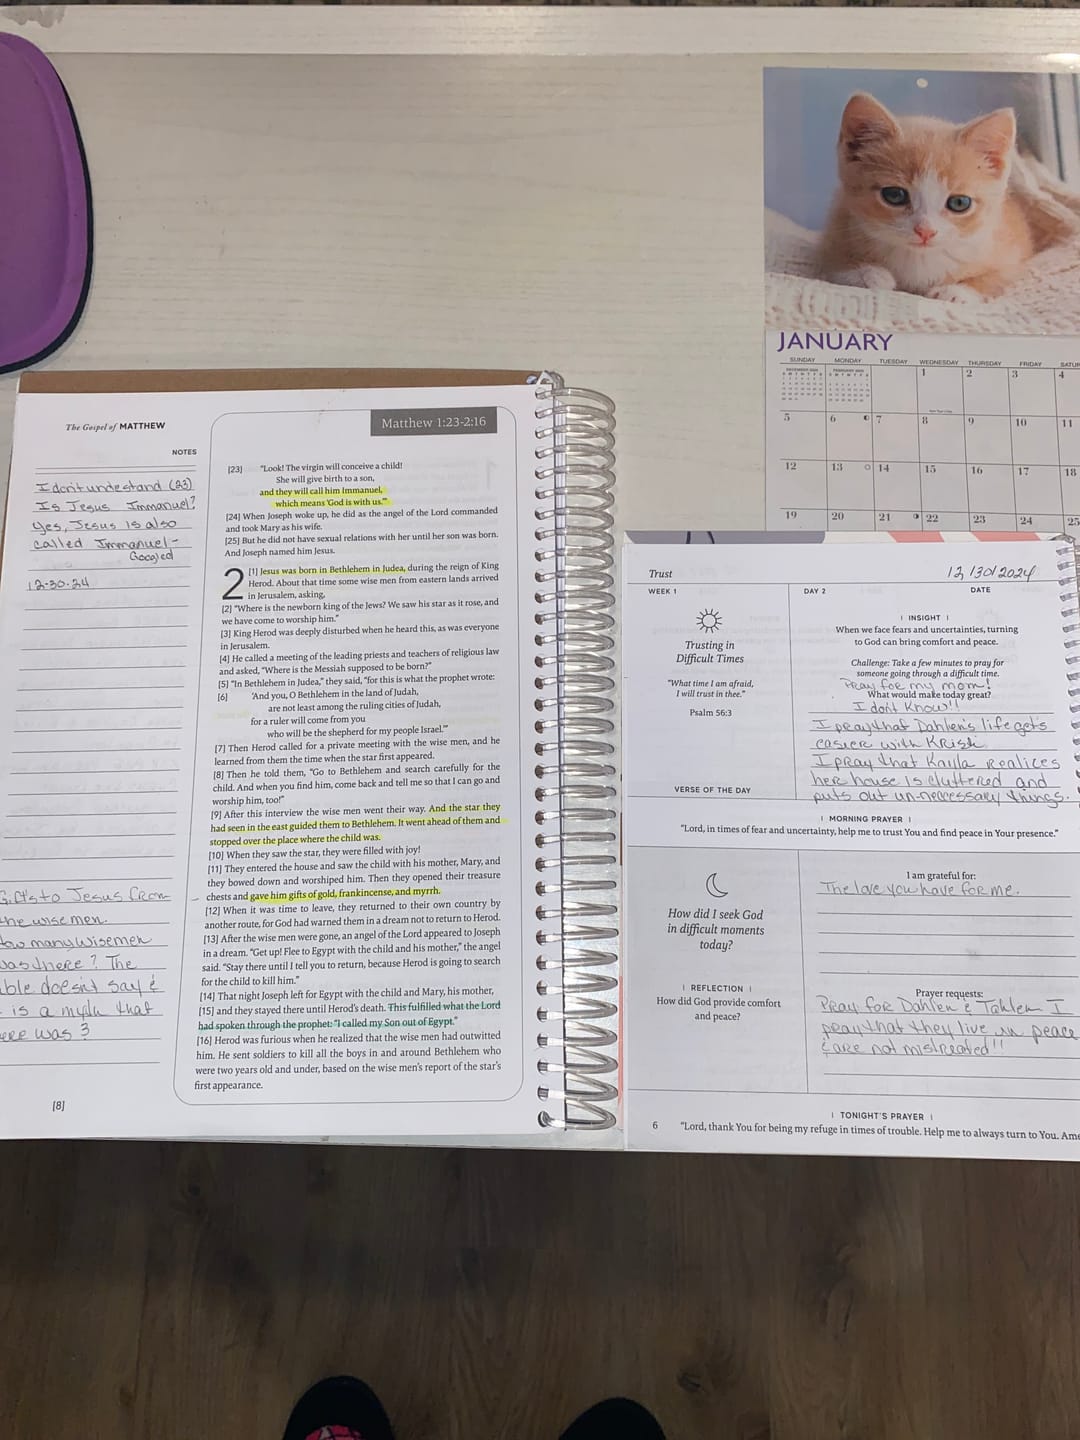 The Gospel of MATTHEW
NOTES
I don't undestand (23)
Is Jesus Immanuel?
Yes, Jesus is also
called Immanuel-
Googled
12-30-24
Gifts to Jesus from
the wisemen.
How many wisemen
was there? The
ble doesn't say &
is a myth that
ere was 3
[8]
Matthew 1:23-2:16
[23] "Look! The virgin will conceive a child!
She will give birth to a son,
and they will call him Immanuel,
which means 'God is with us.'"
[24] When Joseph woke up, he did as the angel of the Lord commanded
and took Mary as his wife.
[25] But he did not have sexual relations with her until her son was born.
And Joseph named him Jesus.
2 [1] Jesus was born in Bethlehem in Judea, during the reign of King
Herod. About that time some wise men from eastern lands arrived
in Jerusalem, asking,
[2] "Where is the newborn king of the Jews? We saw his star as it rose, and
we have come to worship him."
[3] King Herod was deeply disturbed when he heard this, as was everyone
in Jerusalem.
[4] He called a meeting of the leading priests and teachers of religious law
and asked, "Where is the Messiah supposed to be born?"
[5] "In Bethlehem in Judea," they said, "for this is what the prophet wrote:
[6] 'And you, O Bethlehem in the land of Judah,
are not least among the ruling cities of Judah,
for a ruler will come from you
who will be the shepherd for my people Israel.'"
[7] Then Herod called for a private meeting with the wise men, and he
learned from them the time when the star first appeared.
[8] Then he told them, "Go to Bethlehem and search carefully for the
child. And when you find him, come back and tell me so that I can go and
worship him, too!"
[9] After this interview the wise men went their way. And the star they
had seen in the east guided them to Bethlehem. It went ahead of them and
stopped over the place where the child was.
[10] When they saw the star, they were filled with joy!
[11] They entered the house and saw the child with his mother, Mary, and
they bowed down and worshiped him. Then they opened their treasure
chests and gave him gifts of gold, frankincense, and myrrh.
[12] When it was time to leave, they returned to their own country by
another route, for God had warned them in a dream not to return to Herod.
[13] After the wise men were gone, an angel of the Lord appeared to Joseph
in a dream. "Get up! Flee to Egypt with the child and his mother," the angel
said. "Stay there until I tell you to return, because Herod is going to search
for the child to kill him."
[14] That night Joseph left for Egypt with the child and Mary, his mother,
[15] and they stayed there until Herod's death. This fulfilled what the Lord
had spoken through the prophet: "I called my Son out of Egypt."
[16] Herod was furious when he realized that the wise men had outwitted
him. He sent soldiers to kill all the boys in and around Bethlehem who
were two years old and under, based on the wise men's report of the star's
first appearance.
JANUARY
SUNDAY MONDAY TUESDAY WEDNESDAY THURSDAY FRIDAY SATUR
1 2 3 4
5 6 7 8 9 10 11
12 13 14 15 16 17 18
19 20 21 22 23 24 25
Trust
12/30/2024
WEEK 1
DAY 2
DATE
Trusting in
Difficult Times
"What time I am afraid,
I will trust in thee."
Psalm 56:3
VERSE OF THE DAY
| INSIGHT |
When we face fears and uncertainties, turning
to God can bring comfort and peace.
Challenge: Take a few minutes to pray for
someone going through a difficult time.
Pray for my mom!
What would make today great?
I don't know!!
I pray that Dahlen's life gets
easier with Kristi
I pray that Kayla realices
her house is cluttered and
puts out un-necessary things.
| MORNING PRAYER |
"Lord, in times of fear and uncertainty, help me to trust You and find peace in Your presence."
How did I seek God
in difficult moments
today?
| REFLECTION |
How did God provide comfort
and peace?
I am grateful for:
The love you have for me.
Prayer requests:
Pray for Dahlen & Tahlem I
pray that they live in peace
& are not mistreated!!
| TONIGHT'S PRAYER |
6 "Lord, thank You for being my refuge in times of trouble. Help me to always turn to You. Ame